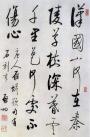 漢國山河在秦
陵草樹深暮雲
千里色無處不
傷心